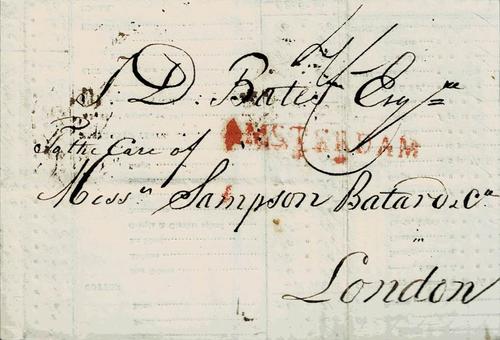 J. D. Bates Esqre
AMSTERDAM
To the Care of
Messrs Sampson Batard & Co
London